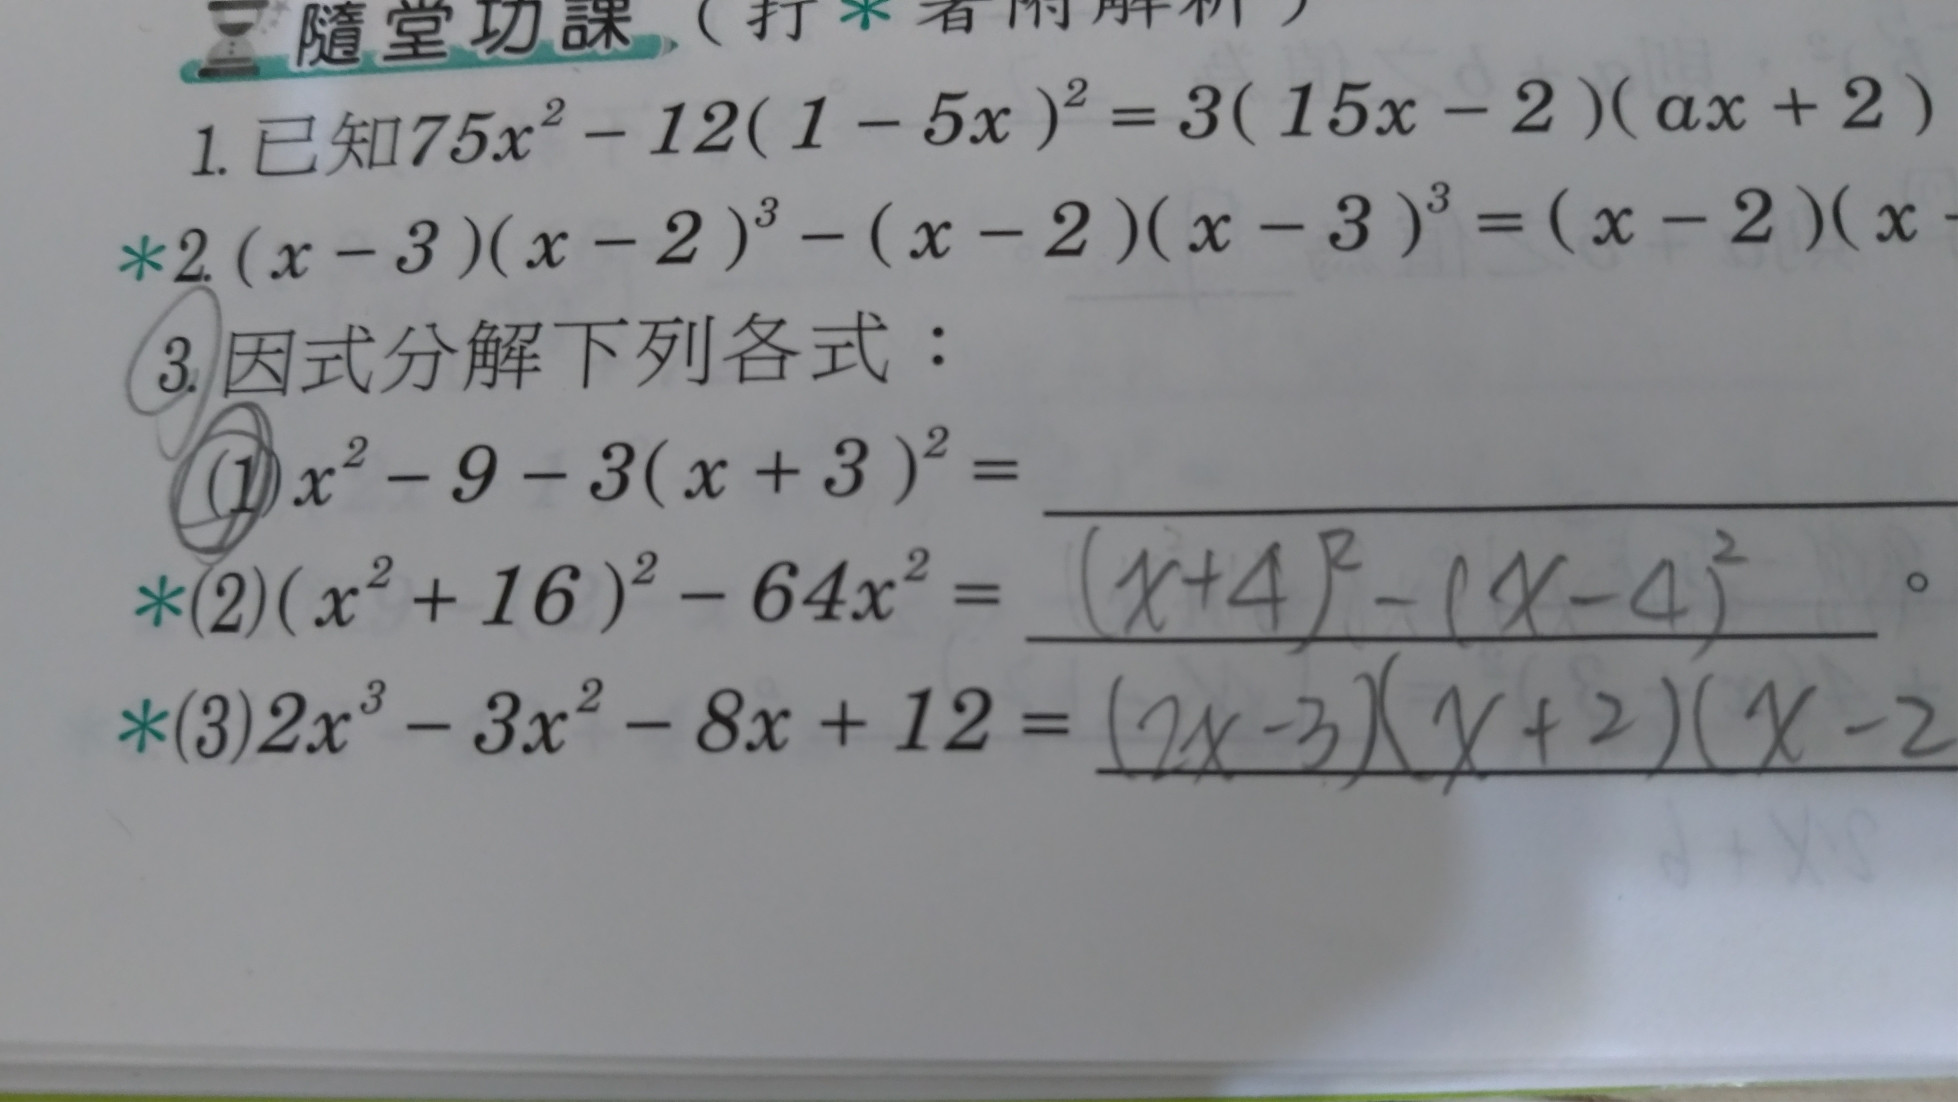 隨堂功課(打*者附解析)
1. 已知75x² - 12( 1 - 5x )² = 3( 15x - 2 )( ax + 2 )
*2. ( x - 3 )( x - 2 )³ - ( x - 2 )( x - 3 )³ = ( x - 2 )( x -
3. 因式分解下列各式：
(1) x² - 9 - 3( x + 3 )² =
*(2)( x² + 16 )² - 64x² = (x+4)² - (x-4)² 。
*(3)2x³ - 3x² - 8x + 12 = (2x-3)(x+2)(x-2